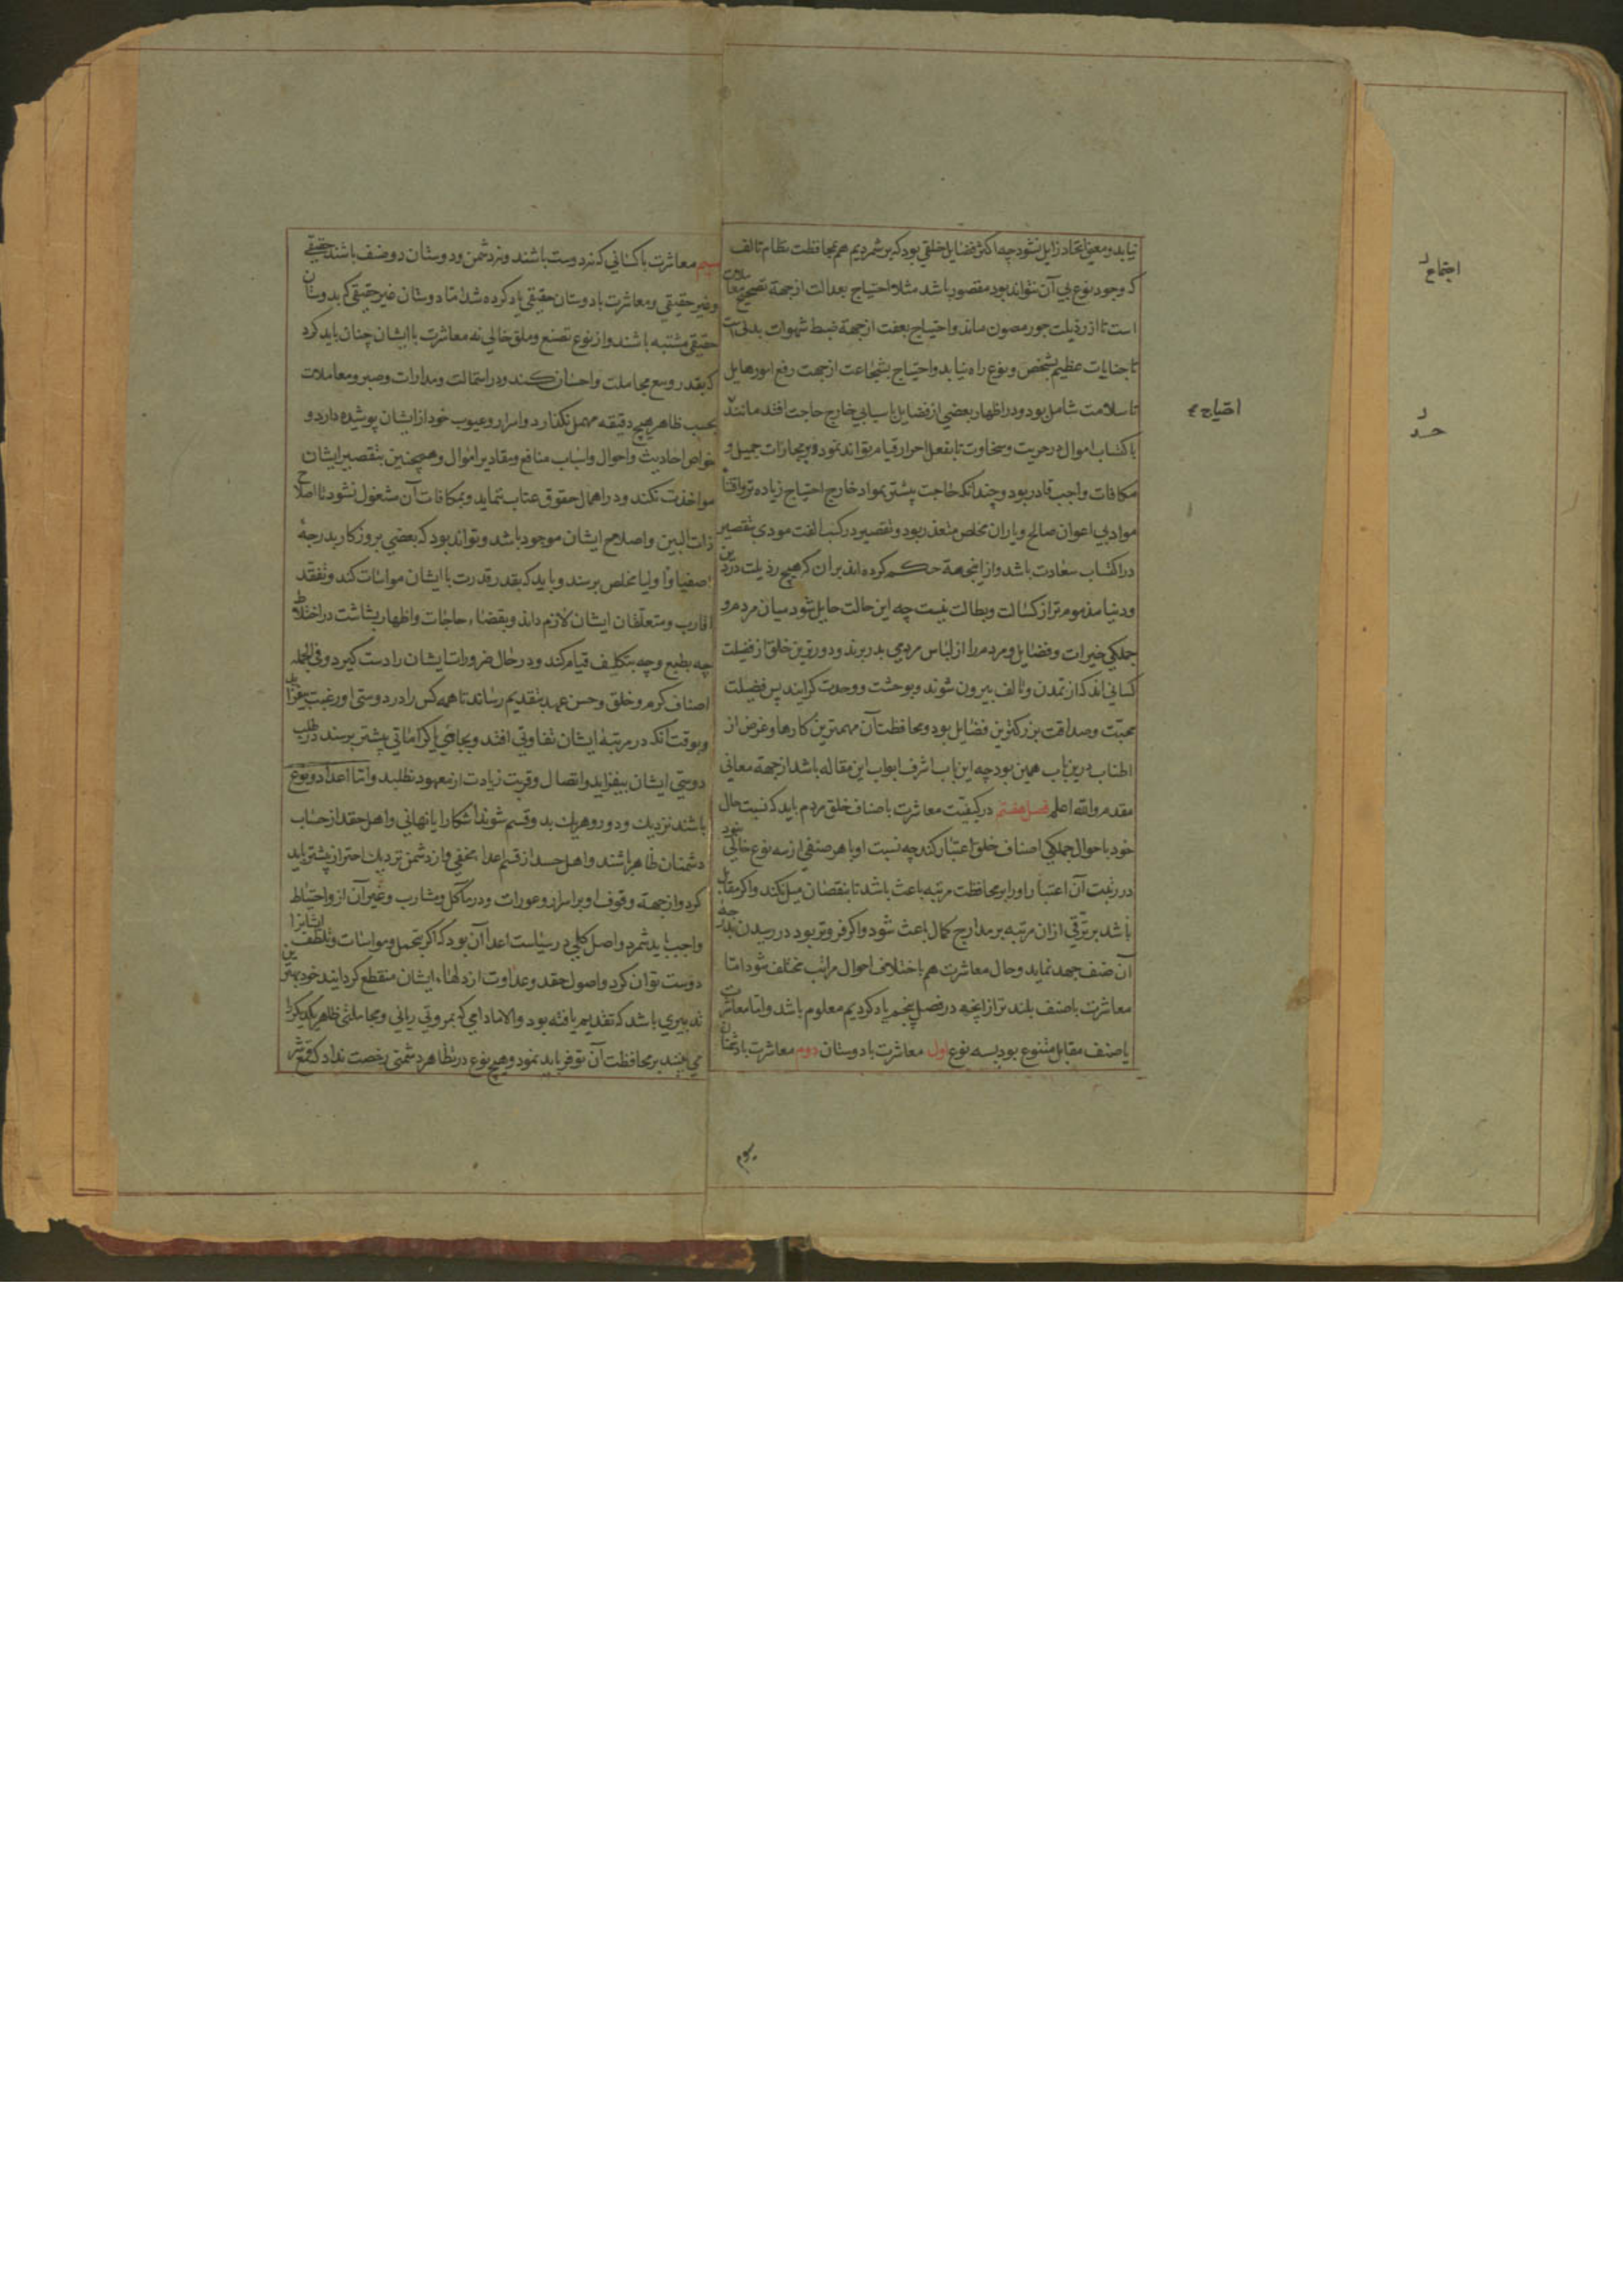 نیابد و معنی اتحاد زایل نشود چه اکثر فضایل خلقی بود که برشمردیم هم بمحافظت نظام تالف
که وجود نوع بی آن نتواند بود مقصور باشد مثلا احتیاج بعدالت از جهة تصحیح معاملات
است تا از رذیلت جور مصون ماند و احتیاج بعفت از جهة ضبط شهوات بدنی است
تا جنایات عظیم بشخص و نوع راه نیابد و احتیاج بشجاعت از جهت رفع امور هایل
تا سلامت شامل بود و در اظهار بعضی از فضایل باسبابی خارج حاجت افتد مانند
باکتساب اموال در حریت و سخاوت تا بفعل احرار قیام تواند نمود و بر مجازات جمیل و
مکافات واجب قادر بود و چندانکه حاجت بیشتر بمواد خارج احتیاج زیاده تر و اقتنا
مواد بی اعوان صالح و یاران مخلص متعذر بود و تقصیر در کسب الفت مودی بتقصیر
در اکتساب سعادت باشد و از اینجهة حکم کرده اند بران که هیچ رذیلت در دین
و دنیا مذموم تر از کسالت و بطالت نیست چه این حالت حایل شود میان مردم و
جملگی خیرات و فضایل و مردم را از لباس مردمی بدر برند و دورترین خلق از فضیلت
کسانی اند که از تمدن و تالف بیرون شوند و بوحشت و وحدت گرایند پس فضیلت
محبت و صداقت بزرگترین فضایل بود و محافظت آن مهمترین کارها و غرض از
اطناب درین باب همین بود چه این باب اشرف ابواب این مقاله باشد از جهة معانی
مقدم و الله اعلم فصل هفتم در کیفیت معاشرت باصناف خلق مردم باید که نسبت حال
خود با احوال جملگی اصناف خلق اعتبار کند چه نسبت او با هر صنفی از سه نوع خالی نبود
در رتبت آن اعتبار او را بر محافظت مرتبه باعث باشد تا بنقصان میل نکند و اگر مقابل
باشد بر ترقی ازان مرتبه بر مدارج کمال باعث شود و اگر فروتر بود در رسیدن بدرجه
آن صنف جهد نماید و حال معاشرت هم باختلاف احوال مراتب مختلف شود اما
معاشرت با صنف بلند تر از آنچه در فصل پنجم یاد کردیم معلوم باشد و اما معاشرت
با صنف مقابل متنوع بود بسه نوع اول معاشرت با دوستان دوم معاشرت با دشمنان
سیم معاشرت با کسانی که نه دوست باشند و نه دشمن و دوستان دو صنف باشند حقیقی
و غیر حقیقی و معاشرت با دوستان حقیقی یاد کرده شد اما دوستان غیر حقیقی که بدوستان
حقیقی مشتبه باشند و از نوع تصنع و ملق خالی نه معاشرت با ایشان چنان باید کرد
که بقدر وسع مجاملت و احسان کند و در استمالت و مدارات و صبر و معاملات
بحسب ظاهر هیچ دقیقه مهمل نگذارد و اسرار و عیوب خود از ایشان پوشیده دارد و
خواص احادیث و احوال و اسباب منافع و مقادیر اموال و همچنین بتقصیر ایشان
مواخذت نکند و در اهمال حقوق عتاب ننماید و بمکافات آن مشغول نشود تا اصلاح
ذات البین و اصلاح ایشان موجود باشد و تواند بود که بعضی بروزکار بدرجه
اصفیا و اولیا مخلص برسند و باید که بقدر قدرت با ایشان مواسات کند و تفقد
اقارب و متعلقان ایشان لازم داند و بقضاء حاجات و اظهار بشاشت در اختلاط
چه بطبع و چه بتکلف قیام کند و در حال ضرورات ایشان را دست گیرد و فی الجمله
اصناف کرم و خلق و حسن عهد بتقدیم رساند تا همه کس را در دوستی او رغبت بیفزاید
و بوقت آنکه در مرتبه ایشان تفاوتی افتد و بجاهی یا کراماتی بیشتر برسند در طلب
دوستی ایشان بیفزاید و اتصال و قربت زیادت از معهود نطلبد و اما اعدا دو نوع
باشند نزدیک و دور و هر یک بدو قسم شوند آشکارا یا نهانی و اهل حقد از حساب
دشمنان ظاهر باشند و اهل حسد از قسم اعداء مخفی و از دشمن نزدیک احتراز بیشتر باید
کرد و از جهة وقوف او بر اسرار و عورات و در مآکل و مشارب و غیر آن ازو احتیاط
واجب باید شمرد و اصل کلی در سیاست اعدا آن بود که اگر بتحمل و مواسات و تلطف ایشانرا
دوست توان کرد و اصول حقد و عداوت از دلهاء ایشان منقطع گردانید خود بهترین
تدبیری باشد که تقدیم یافته بود و الا مادامی که بمروتی ریائی و مجاملتی ظاهر یکدیگر را
می بینند بر محافظت آن توفر باید نمود و هیچ نوع در تظاهر دشمنی رخصت نداد که
احتیاج
اجتماع
حسد
سیم